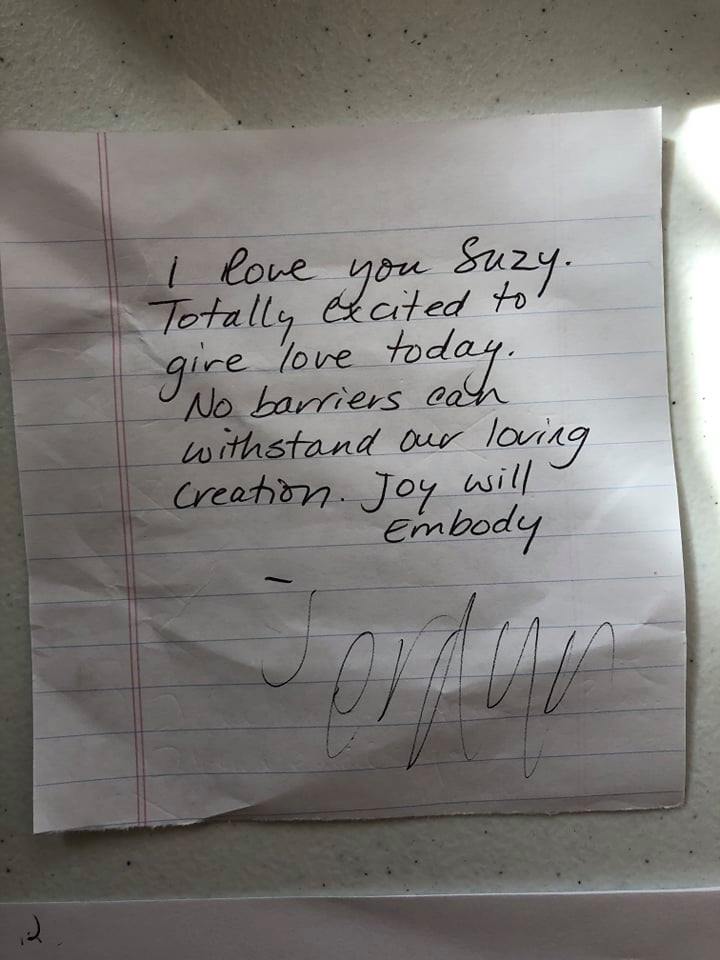 I love you Suzy.
Totally excited to
give love today.
No barriers can
withstand our loving
creation. Joy will
Embody
- Jordyn
2